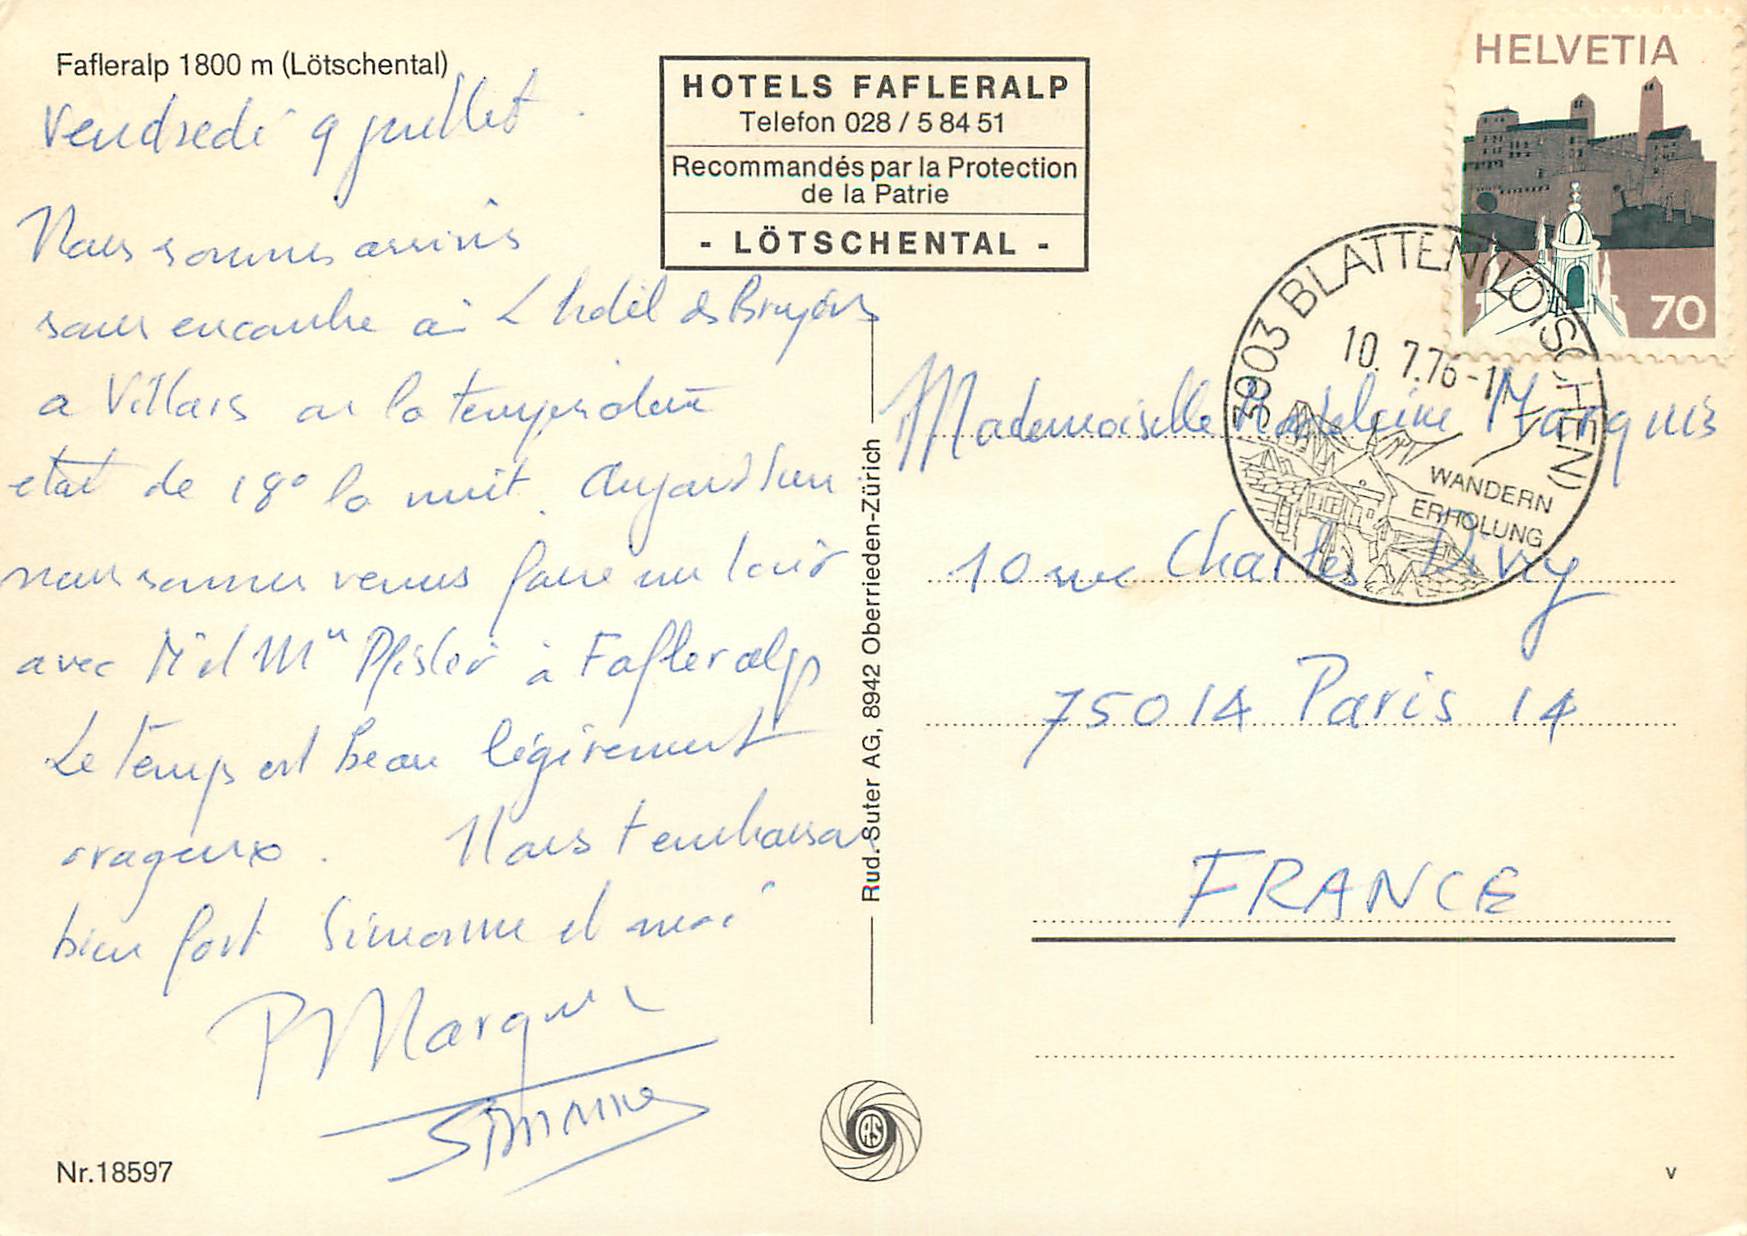 Fafleralp 1800 m (Lötschental)
Vendredi 9 juillet
Nous sommes arrivés
sans encombre à L'hôtel des Bruyères
a Villars où la température
etait de 18° la nuit. Aujourd'hui
nous sommes venus faire un tour
avec Mr et Me Pfister à Fafleralp
Le temps est beau légèrement
orageux. Nous t'embrassons
bien fort Simonne et moi
P Marquis
Simonne
Nr.18597
HOTELS FAFLERALP
Telefon 028 / 5 84 51
Recommandés par la Protection
de la Patrie
- LÖTSCHENTAL -
Rud. Suter AG, 8942 Oberrieden-Zürich
RS
HELVETIA
70
3903 BLATTEN (LÖTSCHEN)
10. 7.76-1
WANDERN
ERHOLUNG
Mademoiselle Madeleine Marquis
10 rue Charles Divry
75014 Paris 14
FRANCE
v